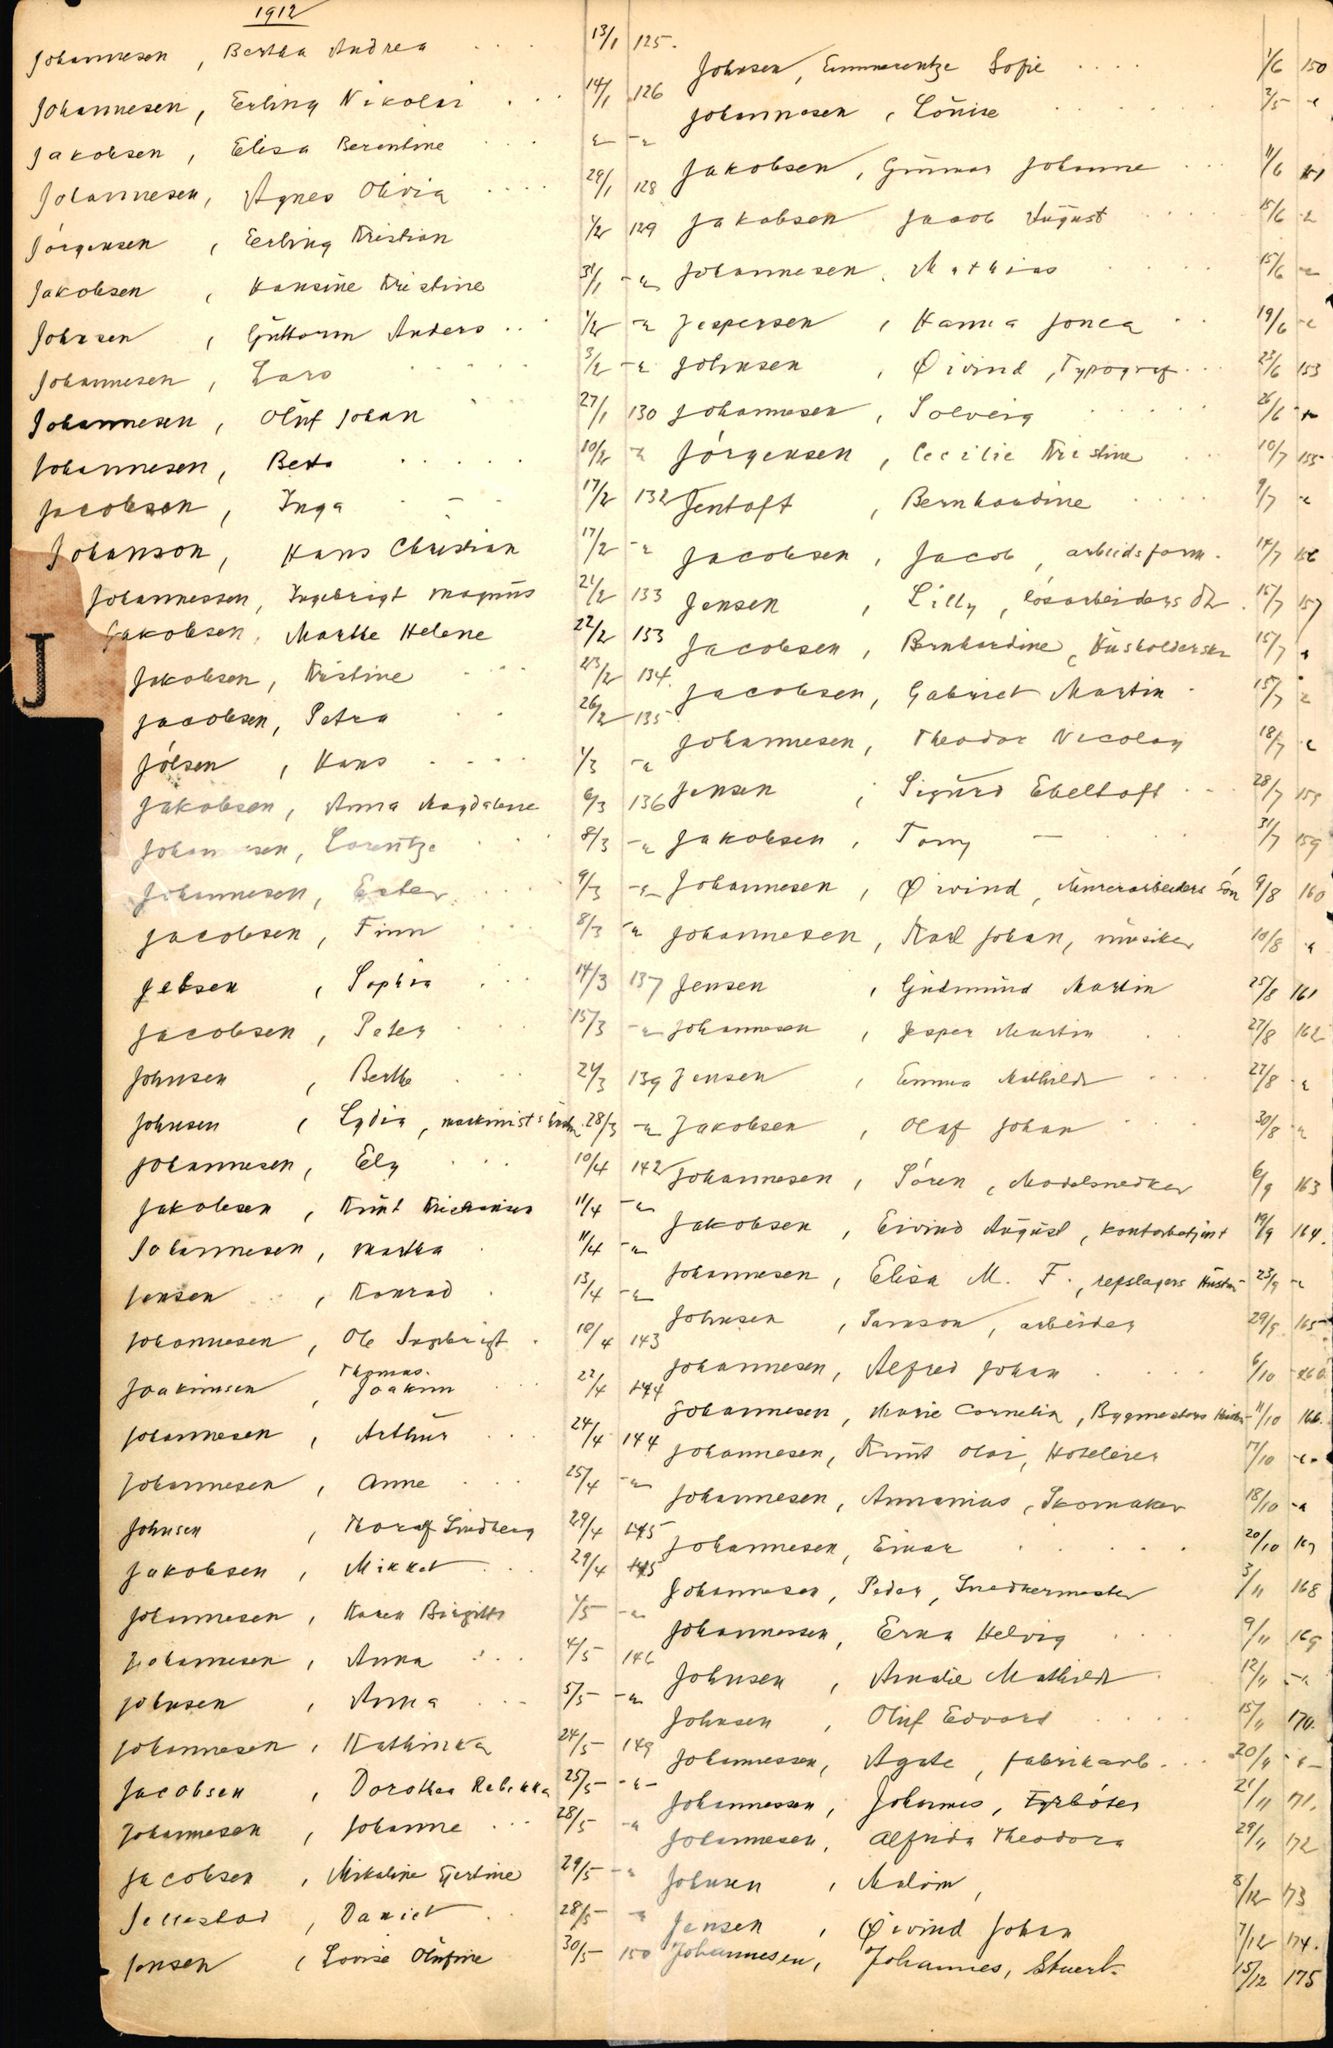 1912
Johannesen, Bertha Andrea .... 13/1 125.
Johannesen, Erling Nikolai ... 14/1 126
Jakobsen, Elisa Berentine ... " -"
Johannesen, Agnes Olivia .... 29/1 128
Jörgensen, Erling Kristian 1/2 129
Jakobsen, Hansine Kristine 31/1 -"
Johnsen, Guttorm Anders .. 1/2 -"
Johannesen, Lars ..... 3/2 -"
Johannesen, Oluf Johan 27/1 130
Johannesen, Berta ..... 10/2 -"
Jacobsen, Inga . - . 17/2 132
Johanson, Hans Christian 17/2 -"
Johannessen, Ingebrigt Magnus 21/2 133
Jakobsen, Marthe Helene 22/2 133
J
Jakobsen, Kristine ... 23/2 134.
Jacobsen, Petra .. 26/2 135
Jólsen, Hans .... 1/3 -"
Jakobsen, Anna Magdalene 6/3 136
Johannesen, Lorentze .. 8/3 -"
Johannesen, Ester .... 9/3 -"
Jacobsen, Finn .... 8/3 -"
Jebsen, Sophia ... 14/3 137
Jacobsen, Peter .... 15/3 -"
Johnsen, Berthe .... 24/3 139
Johnsen, Lydia, maskinists 28/3 -"
Johannesen, Ely .... 10/4 142
Jakobsen, Knut 11/4 -"
Johannesen, Martha . 11/4 -"
Jensen, Konrad . 13/4 -"
Johannesen, Ole Ingebrigt . 18/4 143
Thomas.
Joakimsen, Joakim ... 22/4 144
Johannesen, Arthur ... 24/4 144
Johannesen, Anne .... 25/4 -"
Johnsen, Thoralf Lindberg 29/4 145
Jakobsen, Mikkel ... 29/4 145
Johannesen, Karen Birgitte 1/5 -"
Johannesen, Anna .... 4/5 146
Johnsen, Anna ... 5/5 -"
Johannesen, Kathinka 24/5 149
Jacobsen, Dorothea Rebekka 25/5 -"-
Johannesen, Johanne ... 28/5 -"
Jacobsen, Mikaline Gjertine 29/5 -"
Jellestad, Daniel .. 28/5 -"
Jensen, Lovise Olufine 30/5 150
Johnsen, Emmerentze Sofie .... 1/6 150
Johannesen, Louise ...... 2/5 -"
Jakobsen, Gunnar Johanne ... 11/6 151
Jakobsen Jacob August .... 15/6 -"
Johannesen, Mathias ..... 15/6 -"
Jespersen, Hanna Jonea .. 19/6 -"
Johnsen, Øivind, Typograf ... 23/6 153
Johannesen, Solveig ...... 26/6 -"
Jörgensen, Cecilie Kristine ... 10/7 155
Jentoft, Bernhardine .... 9/7 -"
Jacobsen, Jacob, arbeidsform. 14/7 156
Jensen, Lilly, lósarbeiders dtr. 15/7 157
Jacobsen, Bernhardine, Husholderske 15/7 "
Jacobsen, Gabriel Martin . 15/7 "
Johannesen, Theodor Nicolay 18/7 "
Jensen, Sigurd Ebeltoft ... 28/7 159
Jakobsen, Tomy - ... 31/7 159
Johannesen, Øivind, Murerarbeiders Sön 9/8 160
Johannesen, Karl Johan, musiker 10/8 "
Jensen, Gudmund Martin 25/8 161
Johannesen, Jesper Martin .. 27/8 162
Jensen, Emma Mathilde ... 27/8 "
Jakobsen, Olaf Johan .... 30/8 "
Johannesen, Sören, Modelsnedker 6/9 163
Jakobsen, Eivind August, kontorbetjent 19/9 164.
Johannesen, Elisa M. F., repslagers Hustru 23/9 -"
Johnsen, Samson, arbeider 29/9 165
Johannesen, Alfred Johan .... 6/10 166
Johannesen, Marie Cornelia, Bygmesters Hustru 11/10 166.
Johannesen, Knut Olai, Hoteleier 17/10 -"
Johannesen, Annanias, Skomaker 18/10 -"
Johannesen, Einar ..... 20/10 167
Johannesen, Peder, Snedkermester 3/11 168
Johannessen, Erna Helvig ... 9/11 169
Johnsen, Amalie Mathilde . 12/11 -"
Johnsen, Oluf Edvard .... 15/11 170.
Johannessen, Agate, fabrikarb. .. 20/11 -"
Johannessen, Johannes, Fyrböter 21/11 171.
Johannesen, Alfrida Theodora 29/11 172
Johnsen, Malvin, 8/12 173
Jensen, Øivind Johan 7/12 174.
Johannesen, Johannes, Stuert. 15/12 175